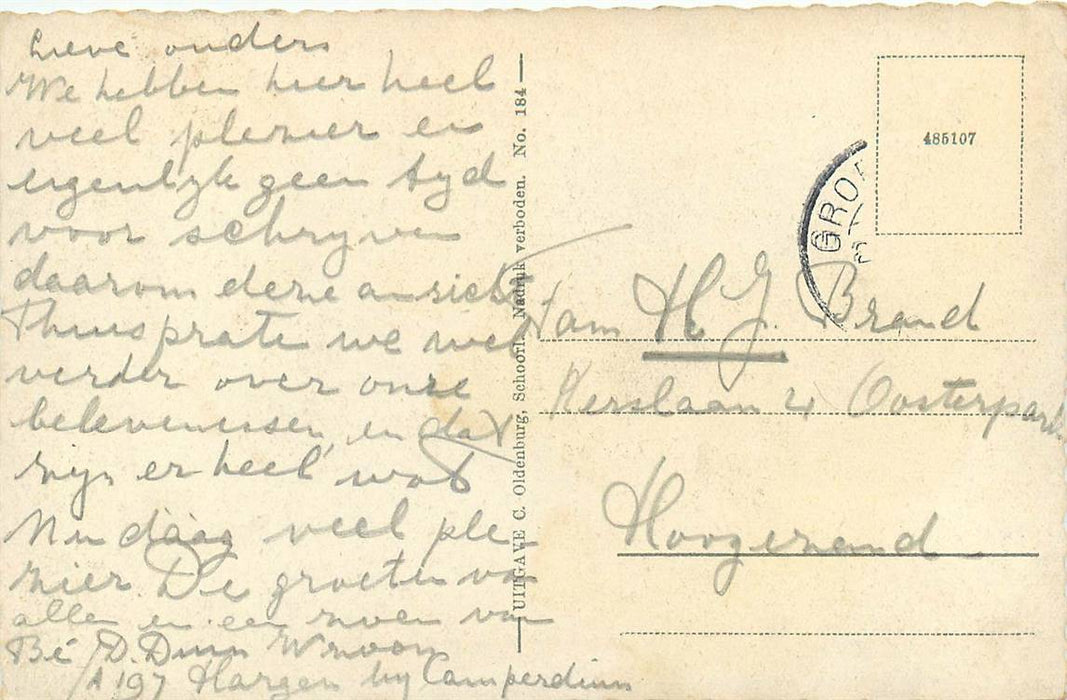 Lieve ouders
We hebben hier heel
veel plezier en
eigenlyk geen tyd
voor schryven
daarom deze ansicht
Thuis praten we wel
verder over onze
belevenissen, en dat
zijn er heel wat
Nu daag veel ple-
zier. De groeten van
allen en een zoen van
Bé D. Duin
A 197 Hargen by Camperduin
UITGAVE C. Oldenburg, Schoorl. Nadruk verboden. No. 184
485107
GRO
Fam H. J. Brand
Kerslaan 21 Oosterpark
Hoogezand